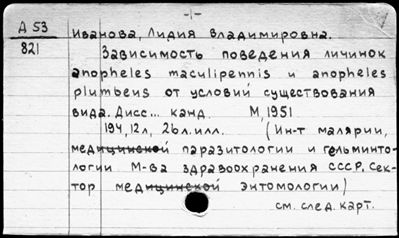 -1-
А 53
821
Иванова, Лидия Владимировна.
Зависимость поведения личинок
anopheles maculipennis и anopheles
plumbeus от условий существования
вида. Дисс... канд. М, 1951
194, 12л, 26л. илл. (Ин-т малярии,
медицинской паразитологии и гельминто-
логии М-ва здравоохранения СССР. Сек-
тор медицинской энтомологии)
см. след. карт.